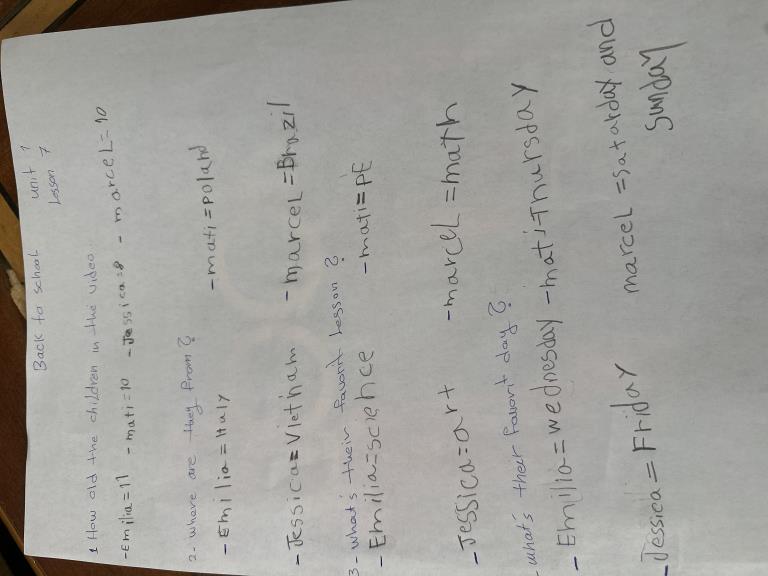 Back to school unit 1
Lesson 7
1 How old the children in the video.
-Emilia=11 -mati=10 -Jessica=8 -marceL=10
2- where are they from?
-Emilia=Italy -mati=Poland
-Jessica=Vietnam -marceL=Brazil
3-what's their favorit Lesson?
-Emilia=science -mati=PE
-Jessica=art -marceL=math
-what's their favorit day?
-Emilia=wednesday -mati=Thursday
-Jessica=Friday marceL=Satarday and
Sunday